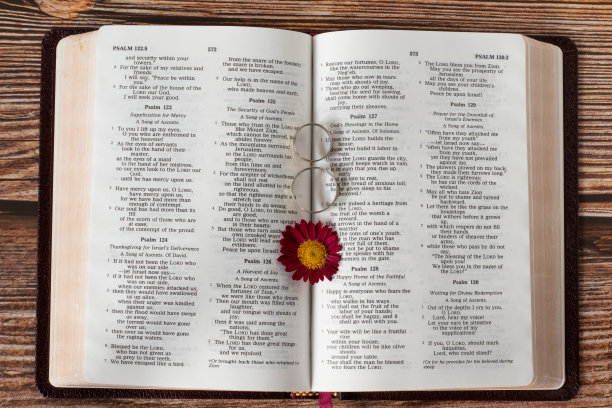 PSALM 122.8
572
and security within your
towers."
8 For the sake of my relatives and
friends
I will say, "Peace be within
you."
9 For the sake of the house of the
LORD our God,
I will seek your good.
Psalm 123
Supplication for Mercy
A Song of Ascents.
1 To you I lift up my eyes,
O you who are enthroned in
the heavens!
2 As the eyes of servants
look to the hand of their
master,
as the eyes of a maid
to the hand of her mistress,
so our eyes look to the LORD our
God,
until he has mercy upon us.
3 Have mercy upon us, O LORD,
have mercy upon us,
for we have had more than
enough of contempt.
4 Our soul has had more than its
fill
of the scorn of those who are
at ease,
of the contempt of the proud.
Psalm 124
Thanksgiving for Israel's Deliverance
A Song of Ascents. Of David.
1 If it had not been the LORD who
was on our side
—let Israel now say—
2 if it had not been the LORD who
was on our side,
when our enemies attacked us
3 then they would have swallowed
us up alive,
when their anger was kindled
against us;
4 then the flood would have swept
us away,
the torrent would have gone
over us;
5 then over us would have gone
the raging waters.
6 Blessed be the LORD,
who has not given us
as prey to their teeth.
7 We have escaped like a bird
from the snare of the fowlers;
the snare is broken,
and we have escaped.
8 Our help is in the name of the
LORD,
who made heaven and earth.
Psalm 125
The Security of God's People
A Song of Ascents.
1 Those who trust in the LORD are
like Mount Zion,
which cannot be moved, but
abides forever.
2 As the mountains surround
Jerusalem,
so the LORD surrounds his
people,
from this time on and
forevermore.
3 For the scepter of wickedness
shall not rest
on the land allotted to the
righteous,
so that the righteous might not
stretch out
their hands to do wrong.
4 Do good, O LORD, to those who
are good,
and to those who are upright
in their hearts.
5 But those who turn aside to their
own crooked ways
the LORD will lead away with
evildoers.
Peace be upon Israel!
Psalm 126
A Harvest of Joy
A Song of Ascents.
1 When the LORD restored the
fortunes of Zion,
we were like those who dream.
2 Then our mouth was filled with
laughter,
and our tongue with shouts of
joy;
then it was said among the
nations,
"The LORD has done great
things for them."
3 The LORD has done great things
for us,
and we rejoiced.
Brought back those who returned to
Zion
573
PSALM 130.3
4 Restore our fortunes, O LORD,
like the watercourses in the
Negeb.
5 May those who sow in tears
reap with shouts of joy.
6 Those who go out weeping,
bearing the seed for sowing,
shall come home with shouts of
joy,
carrying their sheaves.
Psalm 127
God's Blessings in the Home
A Song of Ascents. Of Solomon.
LORD builds the
house,
who build it labor in
vain.
Unless the LORD guards the city,
the guard keeps watch in vain.
in vain that you rise up
early
go late to rest,
eating the bread of anxious toil;
for he gives sleep to his
beloved.
Sons are indeed a heritage from
the LORD,
the fruit of the womb a
reward.
arrows in the hand of a
warrior
the sons of one's youth.
is the man who has
quiver full of them.
shall not be put to shame
he speaks with his
enemies in the gate.
Psalm 128
Happy Home of the Faithful
A Song of Ascents.
1 Happy is everyone who fears the
LORD,
who walks in his ways.
2 You shall eat the fruit of the
labor of your hands;
you shall be happy, and it
shall go well with you.
3 Your wife will be like a fruitful
vine
within your house;
your children will be like olive
shoots
around your table.
4 Thus shall the man be blessed
who fears the LORD.
5 The LORD bless you from Zion.
May you see the prosperity
of Jerusalem
all the days of your life.
6 May you see your children's
children.
Peace be upon Israel!
Psalm 129
Prayer for the Downfall of
Israel's Enemies
A Song of Ascents.
1 "Often have they attacked me
from my youth"
—let Israel now say—
2 "often have they attacked me
from my youth,
yet they have not prevailed
against me.
3 The plowers plowed on my back;
they made their furrows long."
4 The LORD is righteous;
he has cut the cords of the
wicked.
5 May all who hate Zion
be put to shame and turned
backward.
6 Let them be like the grass on the
housetops
that withers before it grows
up,
7 with which reapers do not fill
their hands
or binders of sheaves their
arms,
8 while those who pass by do not
say,
"The blessing of the LORD be
upon you!
We bless you in the name of
the LORD!"
Psalm 130
Waiting for Divine Redemption
A Song of Ascents.
1 Out of the depths I cry to you,
O LORD.
2 Lord, hear my voice!
Let your ears be attentive
to the voice of my
supplications!
3 If you, O LORD, should mark
iniquities,
Lord, who could stand?
Or for he provides for his beloved during
sleep